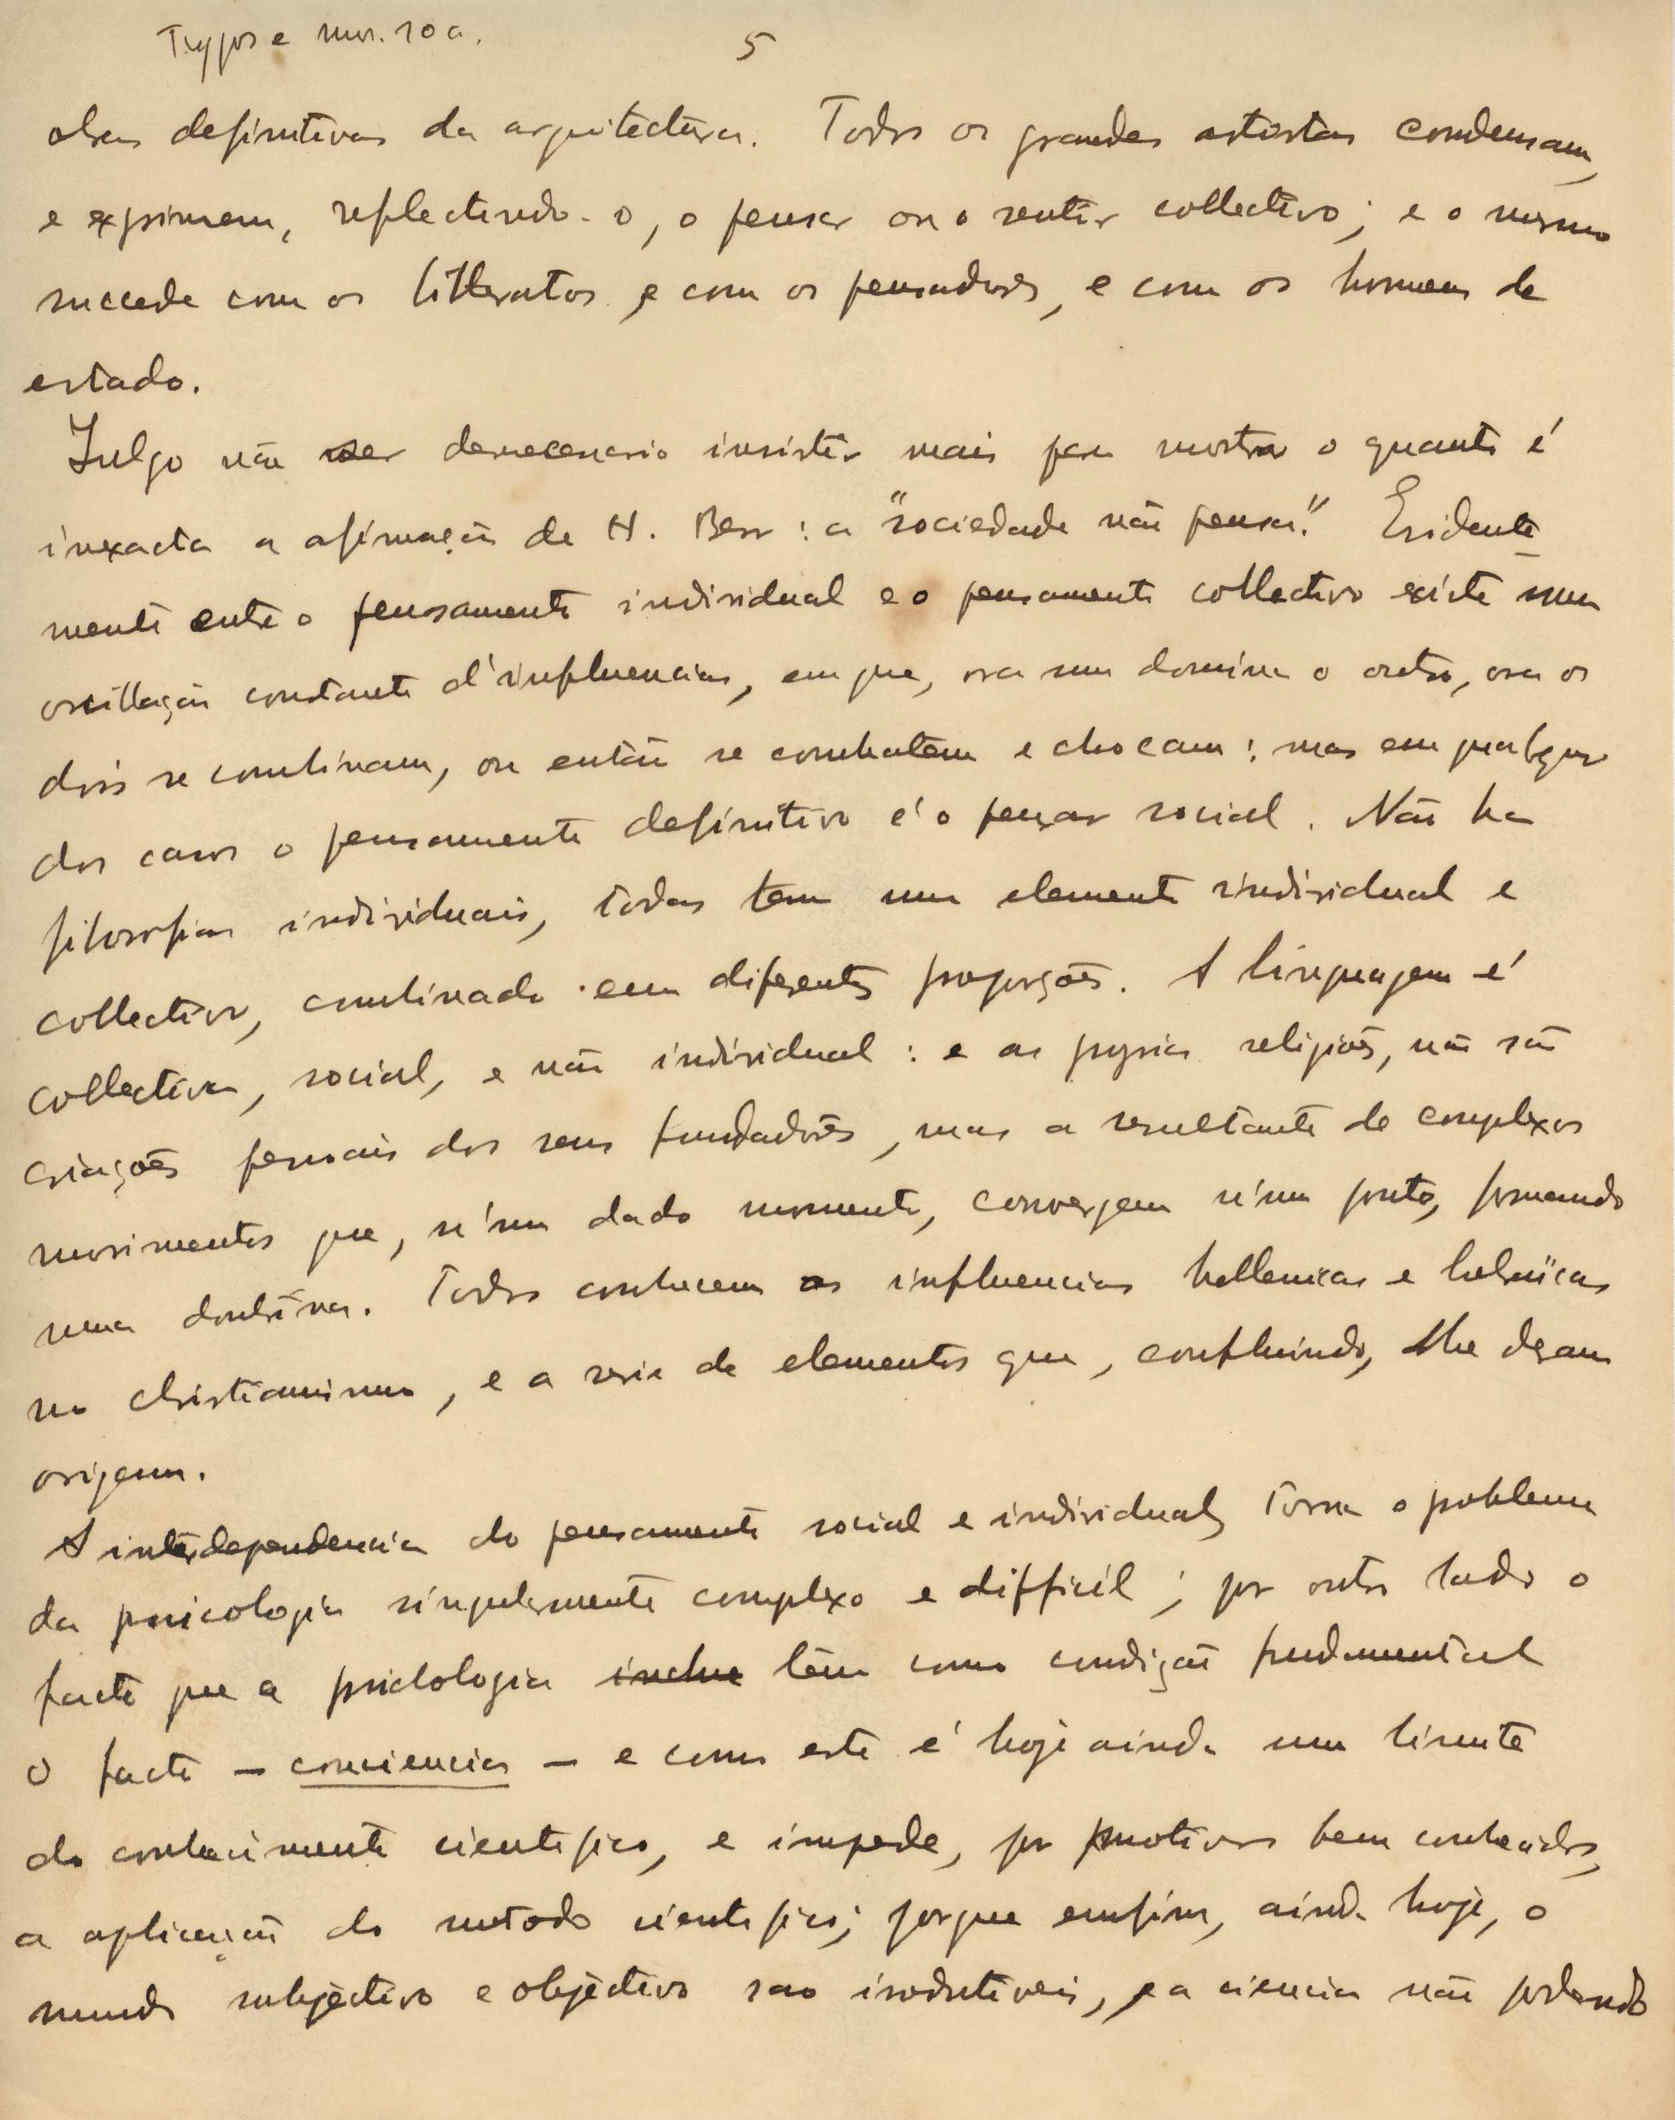 5
obras definitivas da arquitectura. Todos os grandes artistas condensam,
e exprimem, reflectindo-o, o pensar ou o sentir collectivo; e o mesmo
succede com os litteratos, e com os pensadores, e com os homens de
estado.
Julgo não ser desnecenario insistir mais para mostrar o quanto é
inexacta a afirmação de H. Berr: a "sociedade não pensa". Evidente-
mente entre o pensamento individual e o pensamento collectivo existe uma
oscillação constante d'influencias, em que, ora um domina o outro, ora os
dois se combinam, ou então se combatem e chocam: mas em qualquer
dos casos o pensamento definitivo é o pensar social. Não ha
filosofias individuais, todas tem um elemento individual e
collectivo, combinado em diferentes proporções. A linguagem é
collectiva, social, e não individual: e as proprias religiões, não são
criações pessoais dos seus fundadores, mas a resultante de complexos
movimentos que, n'um dado momento, convergem n'um ponto, formando
uma doutrina. Todos conhecem as influencias hellenicas e hebraïcas
no christianismo, e a serie de elementos que, confluindo, lhe deram
origem.
A interdependencia do pensamento social e individual, torna o problema
da psicologia singularmente complexo e difficil; por outro lado o
facto que a psicologia inclue têm como condição fundamental
o facto - consciencia - e como este é hoje ainda um limite
do conhecimento cientifico, e impede, por motivos bem conhecidos,
a aplicação do metodo cientifico; porque emfim, ainda hoje, o
mundo subjectivo e objectivo sao irredutiveis, e a ciencia não podendo